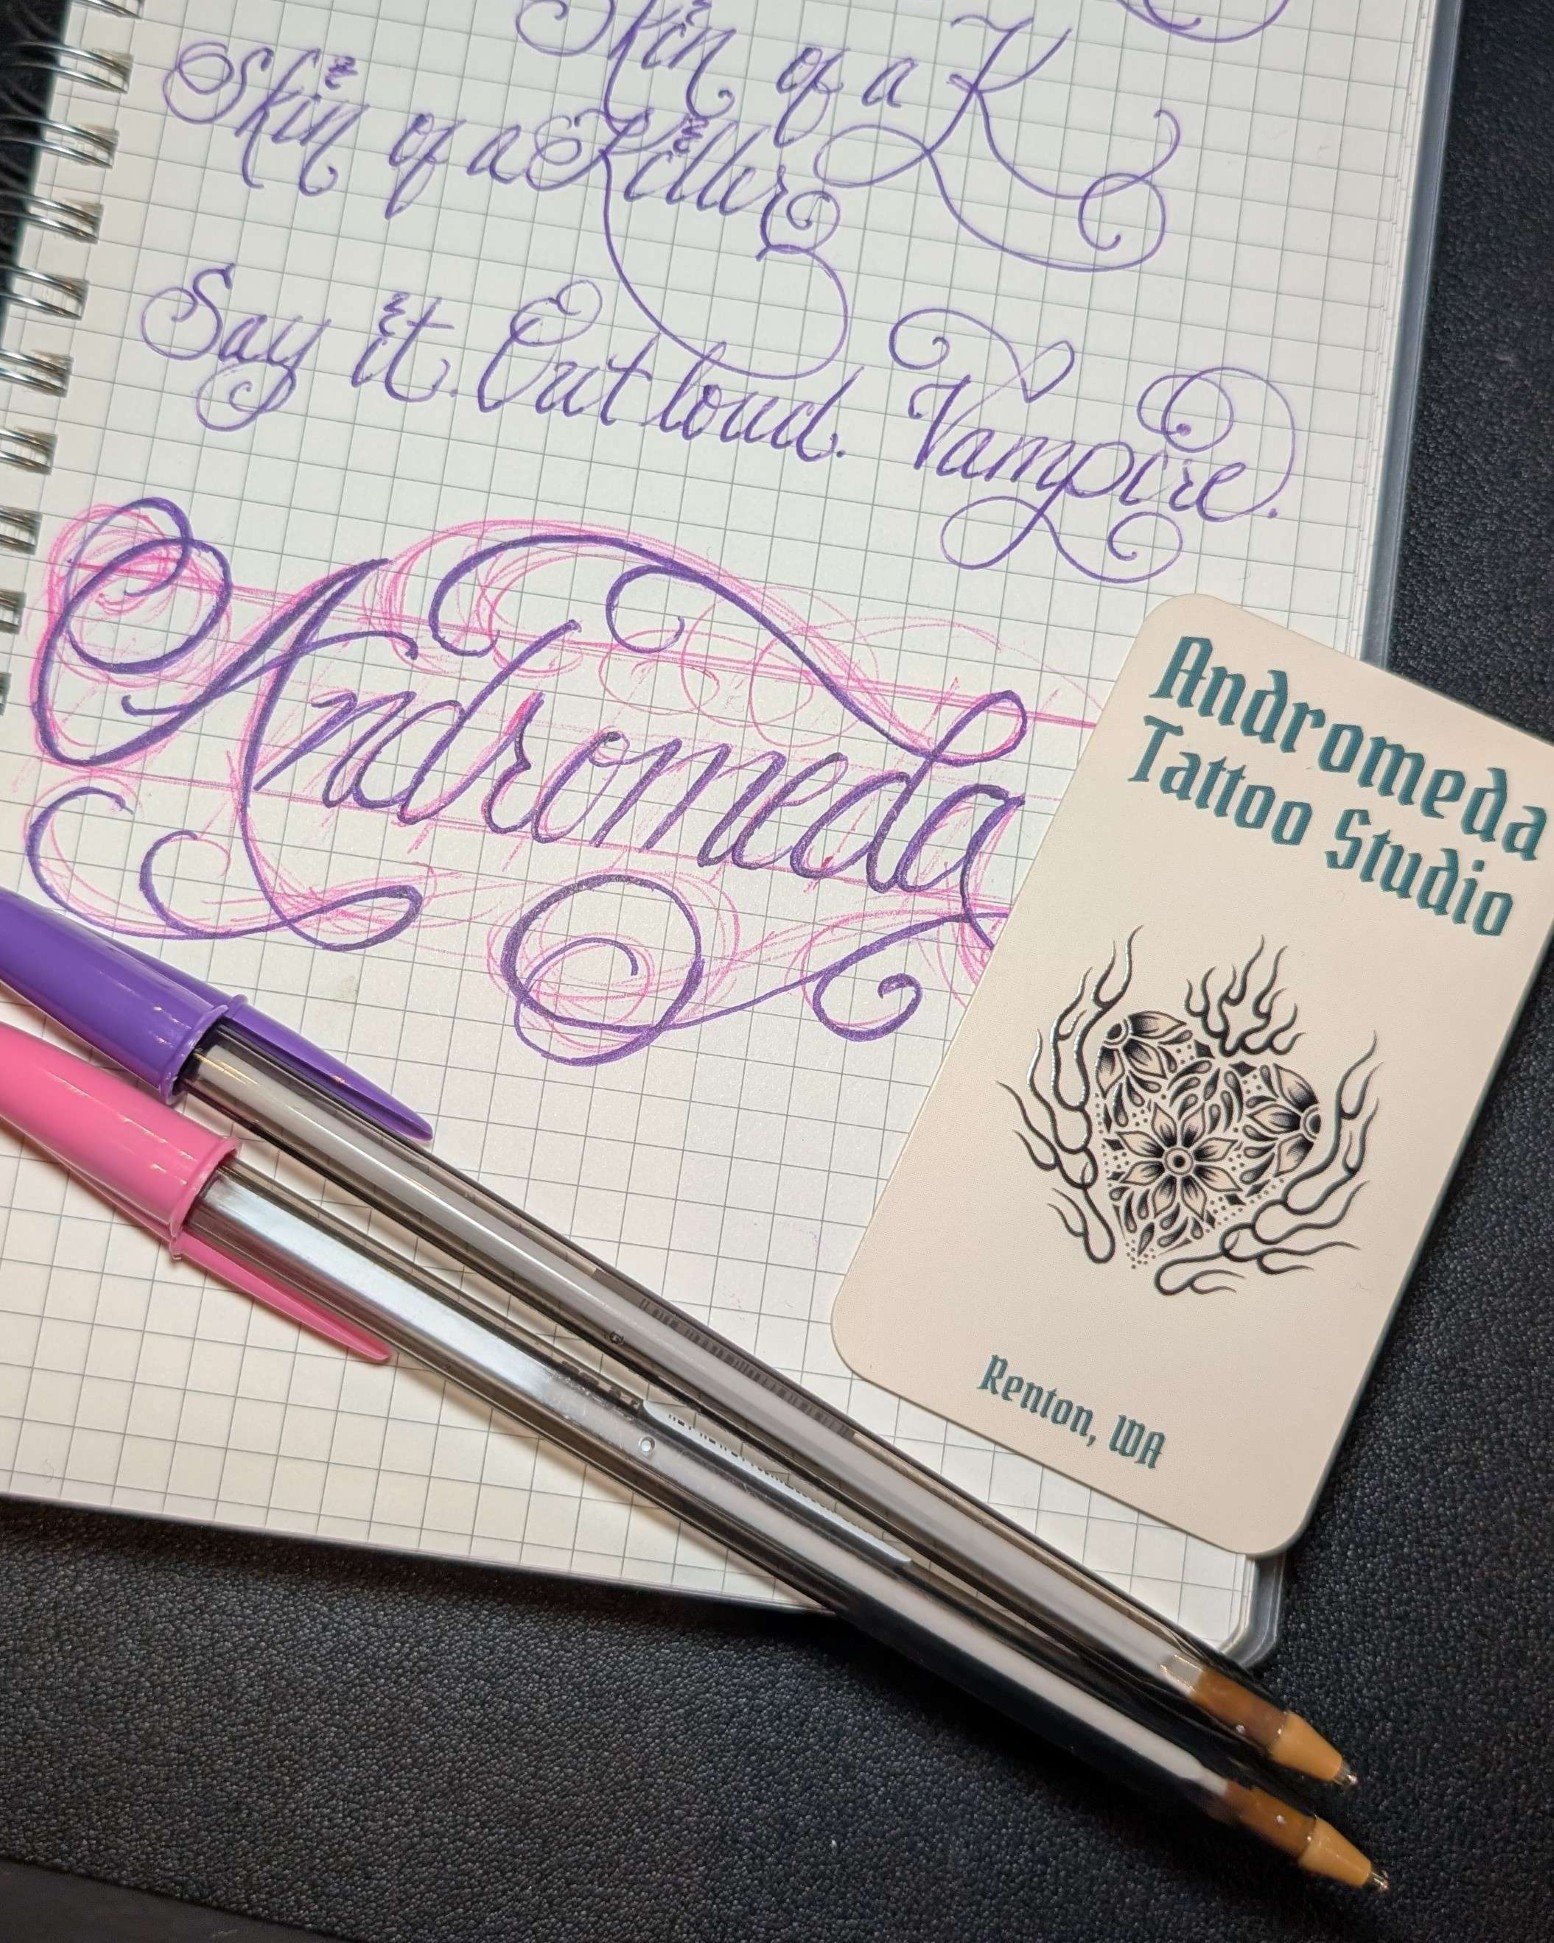 Skin of a K
Skin of a Killer
Say it. Out loud. Vampire.
Andromeda
Andromeda
Tattoo Studio
Renton, WA